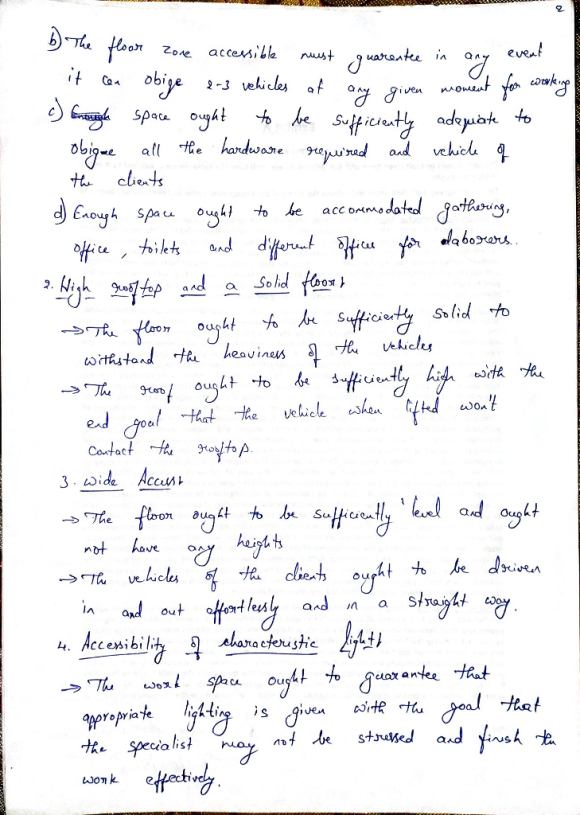 2
b) The floor zone accessible must guarentee in any event
it can obige 2-3 vehicles at any given moment for working
c) Enough space ought to be sufficiently adequate to
obigue all the hardware required and vehicle of
the clients
d) Enough space ought to be accommodated gathering,
office, toilets and different offices for laborers..
2. High rooftop and a Solid floor:
→ The floor ought to be sufficiently solid to
withstand the heaviness of the vehicles
→ The roof ought to be sufficiently high with the
end goal that the vehicle when lifted won't
Contact the rooftop.
3. Wide Access:
→ The floor ought to be sufficiently level and ought
not have any heights
→ The vehicles of the clients ought to be driven
in and out effortlessly and in a straight way.
4. Accessibility of characteristic lights
→ The work space ought to guarantee that
appropriate lighting is given with the goal that
the specialist may not be stressed and finish the
work effectively.